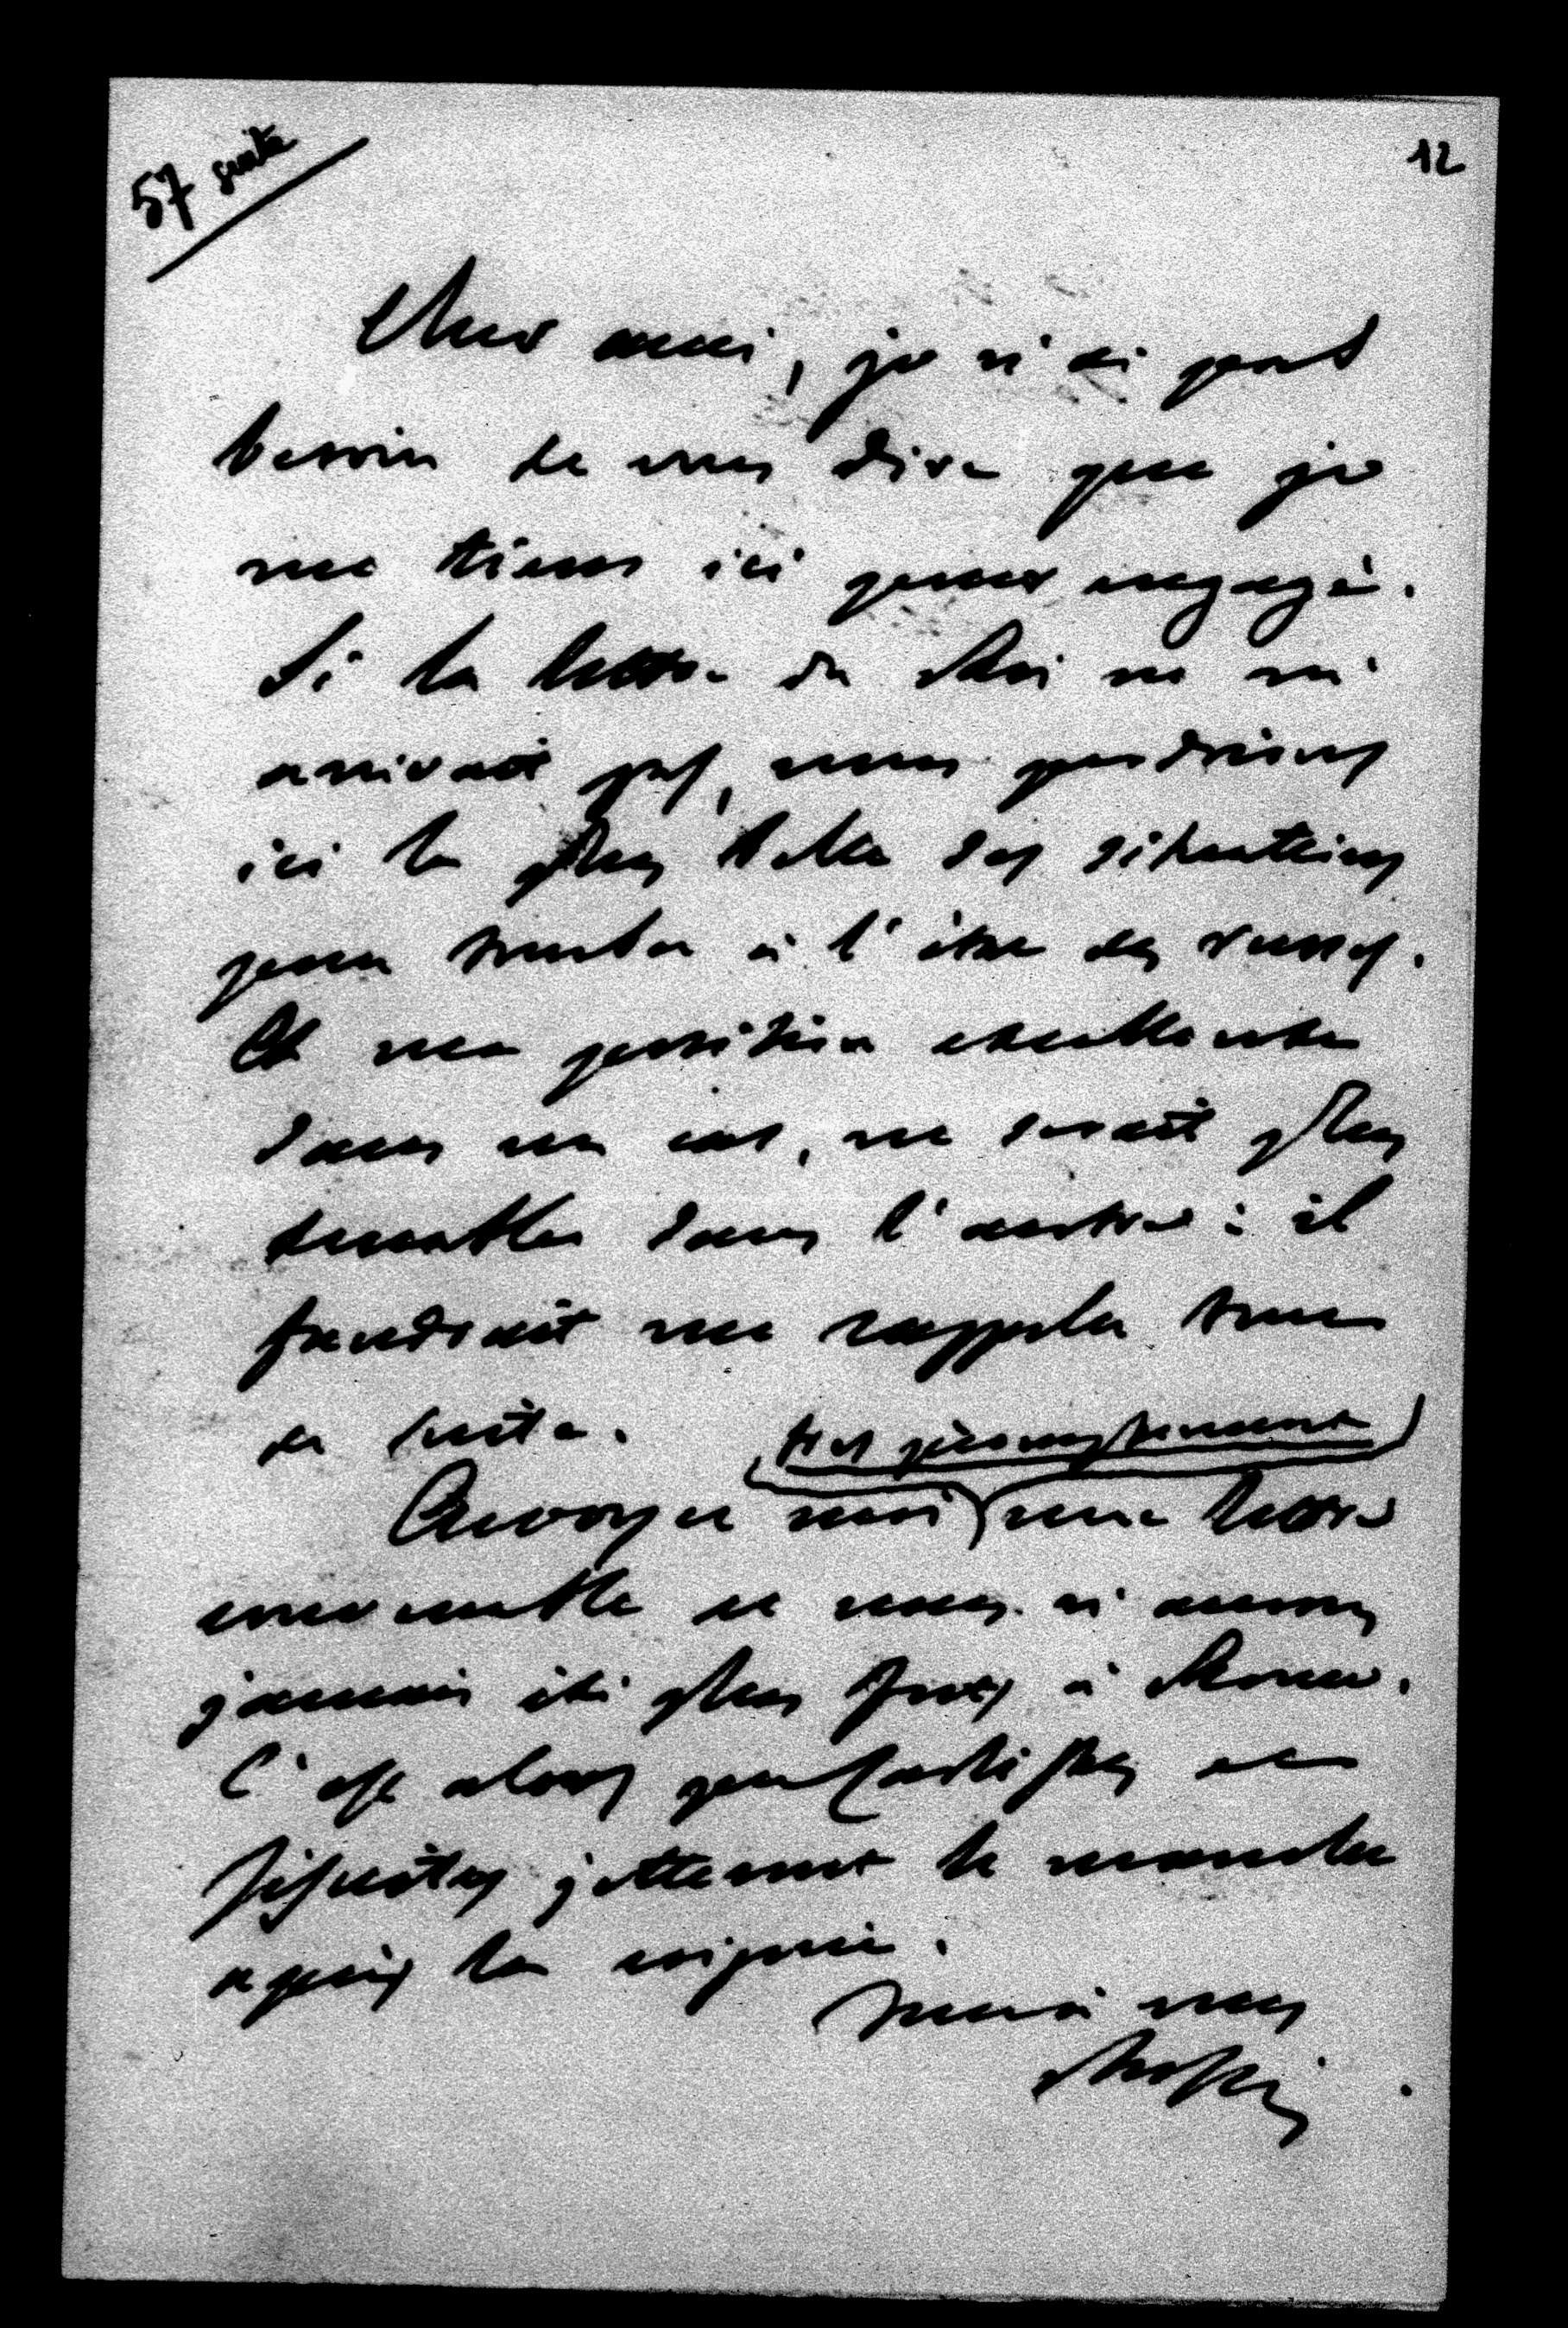 57 suite
12
Cher ami, je n'ai pas
besoin de vous dire que je
me tiens ici pour engagé.
Si la lettre du Roi ne m'
arrivait pas, nous perdrions
ici la plus belle des situations
pour tomber à l'état de
Et ma position excellente
dans un cas, ne serait plus
tenable dans l'autre : il
faudrait me rappeler tout
de suite.
très promptement
Envoyez moi une lettre
convenable et nous n'aurons
jamais été plus forts à Rome.
C'est alors que Carlistes et
Jésuites jetteront le manche
après la cognée.
vous